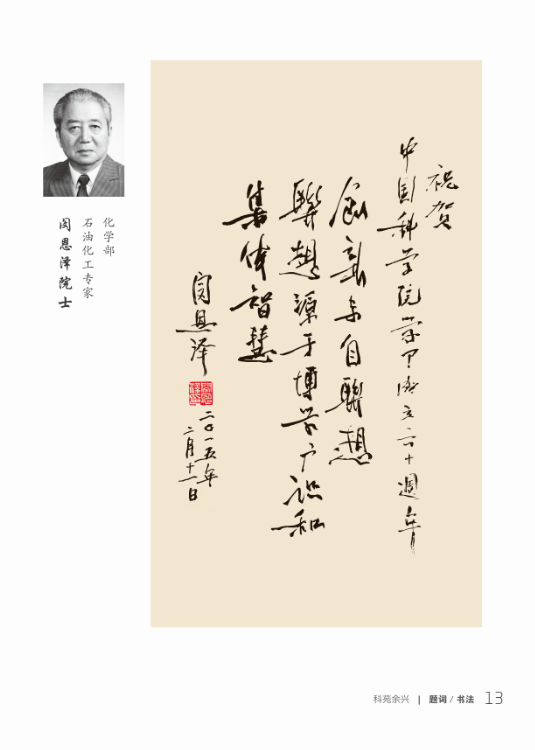 化学部
石油化工专家
闵恩泽院士
祝贺
中国科学院学部成立六十週年
創新来自聯想
聯想源于博学广识和
集体智慧
闵恩泽
二〇一五年
二月十一日
科苑余兴 | 题词 / 书法 13